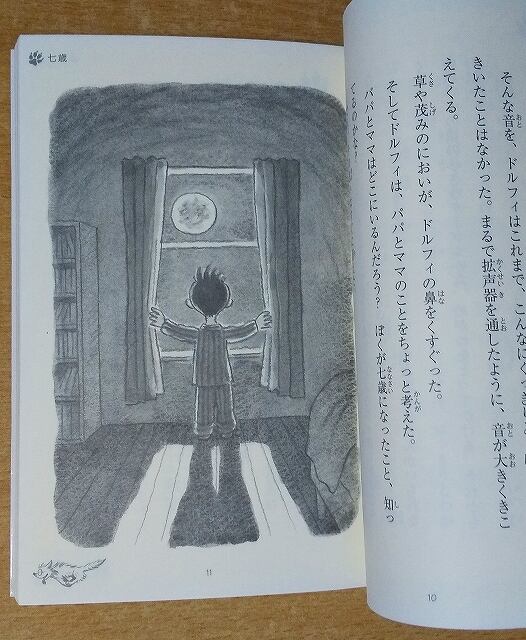 そんな音を、ドルフィはこれまで、こんなに
きいたことはなかった。まるで拡声器を通したように、音が大きくきこ
えてくる。
草や茂みのにおいが、ドルフィの鼻をくすぐった。
そしてドルフィは、パパとママのことをちょっと考えた。
パパとママはどこにいるんだろう? ぼくが七歳になったこと、知っ
てるのかな?
10
七歳
11